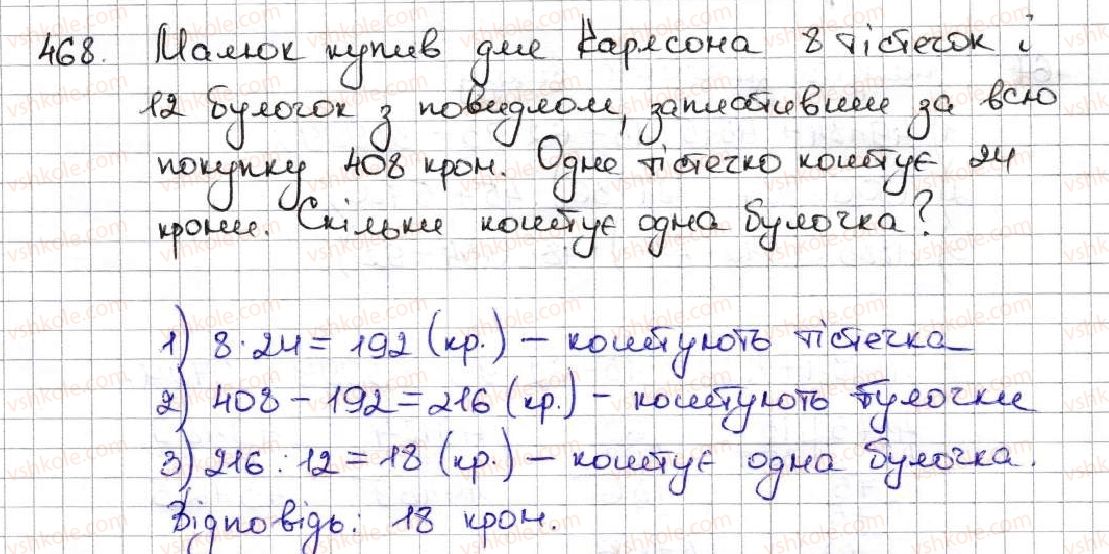 468. Малюк купив для Карлсона 8 тістечок і
12 булочок з повидлом, заплативши за всю
покупку 408 крон. Одне тістечко коштує 24
крони. Скільки коштує одна булочка?
1) 8·24=192 (кр.) – коштують тістечка
2) 408-192=216 (кр.) – коштують булочки
3) 216:12=18 (кр.) – коштує одна булочка.
Відповідь: 18 крон.